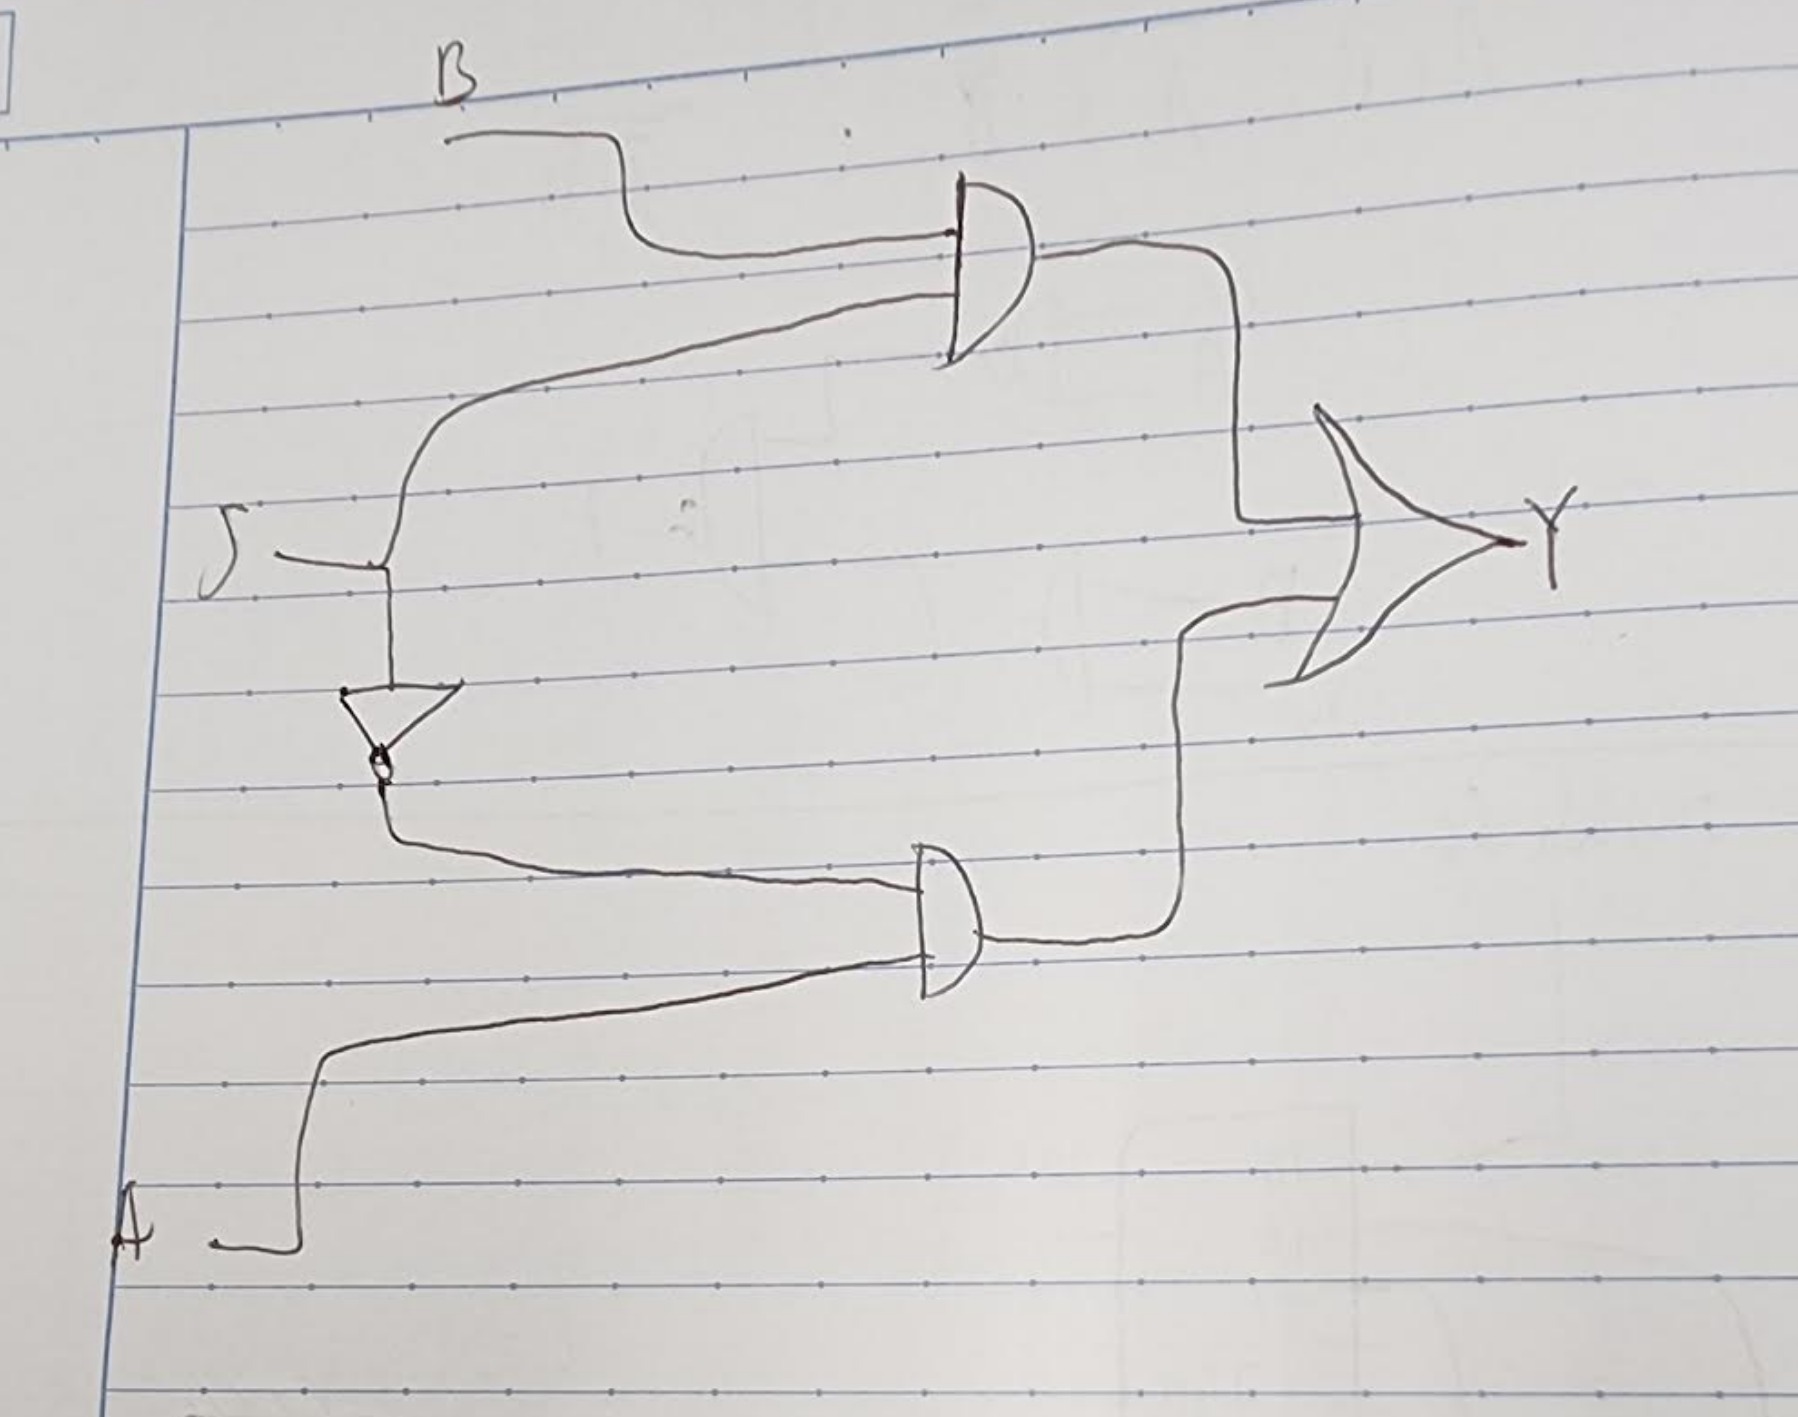 B
S
Y
A